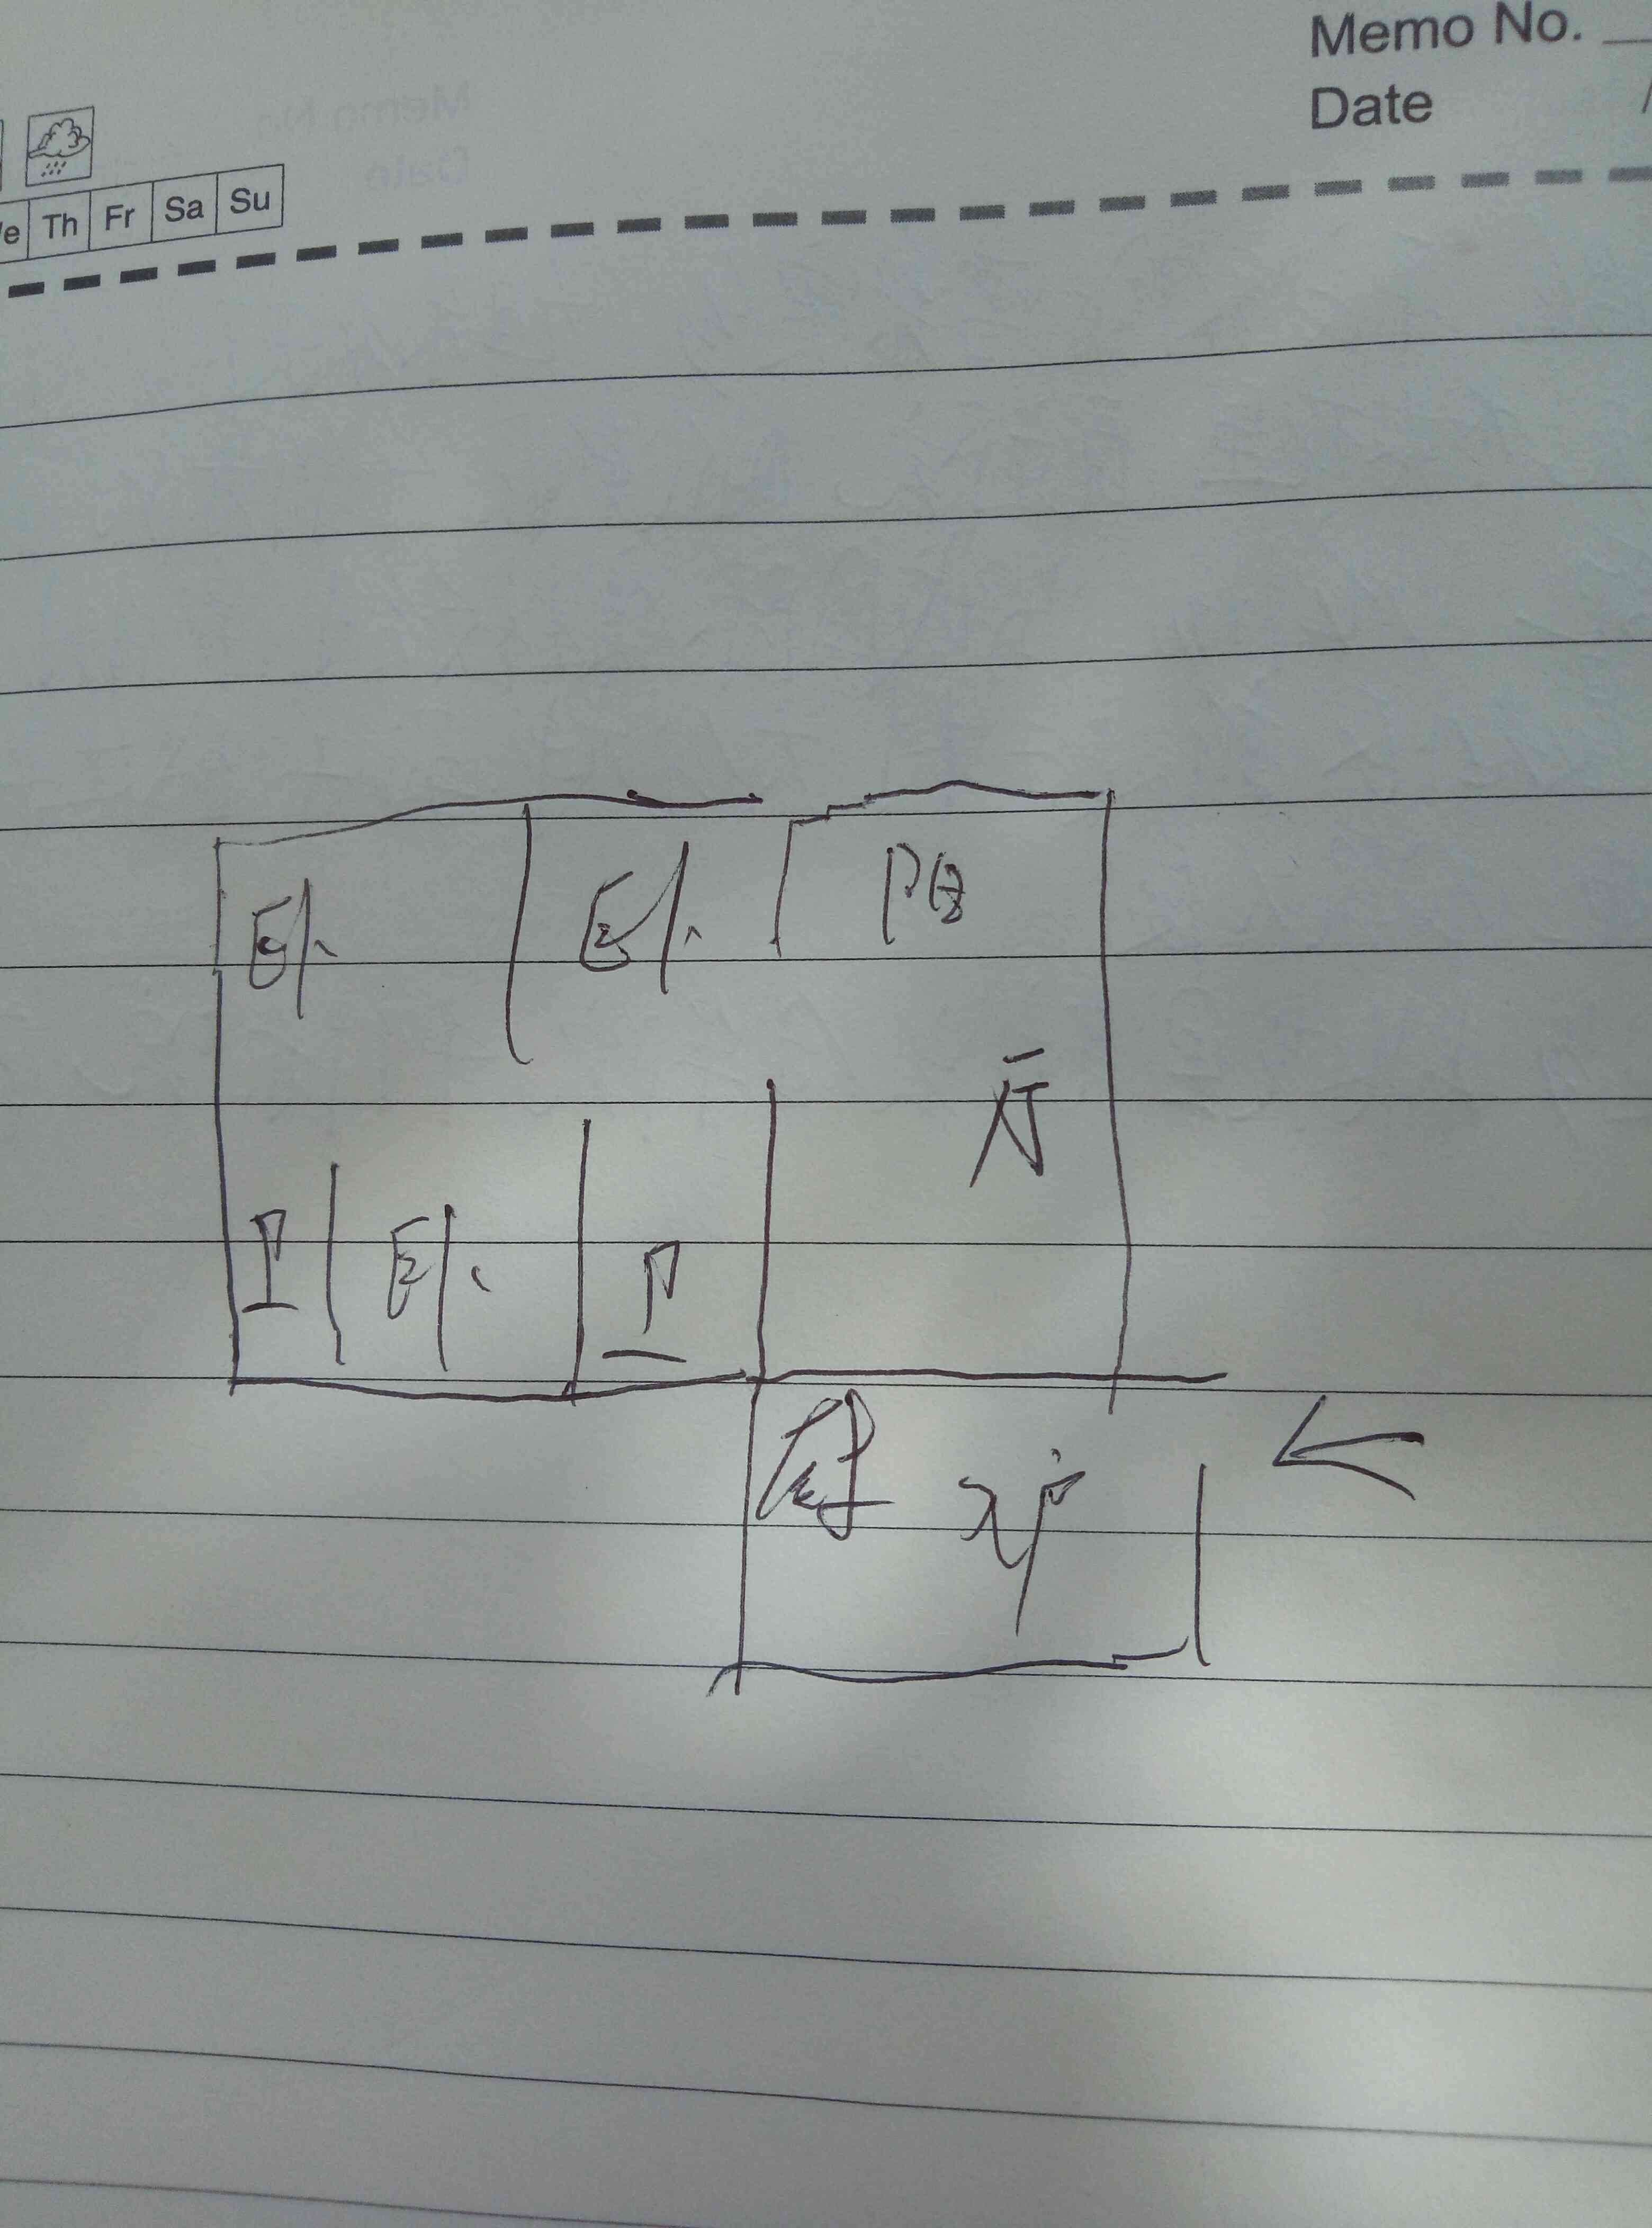 Memo No.
Date /
Th Fr Sa Su
卧 卧 阳
厅
卫 卧 卫